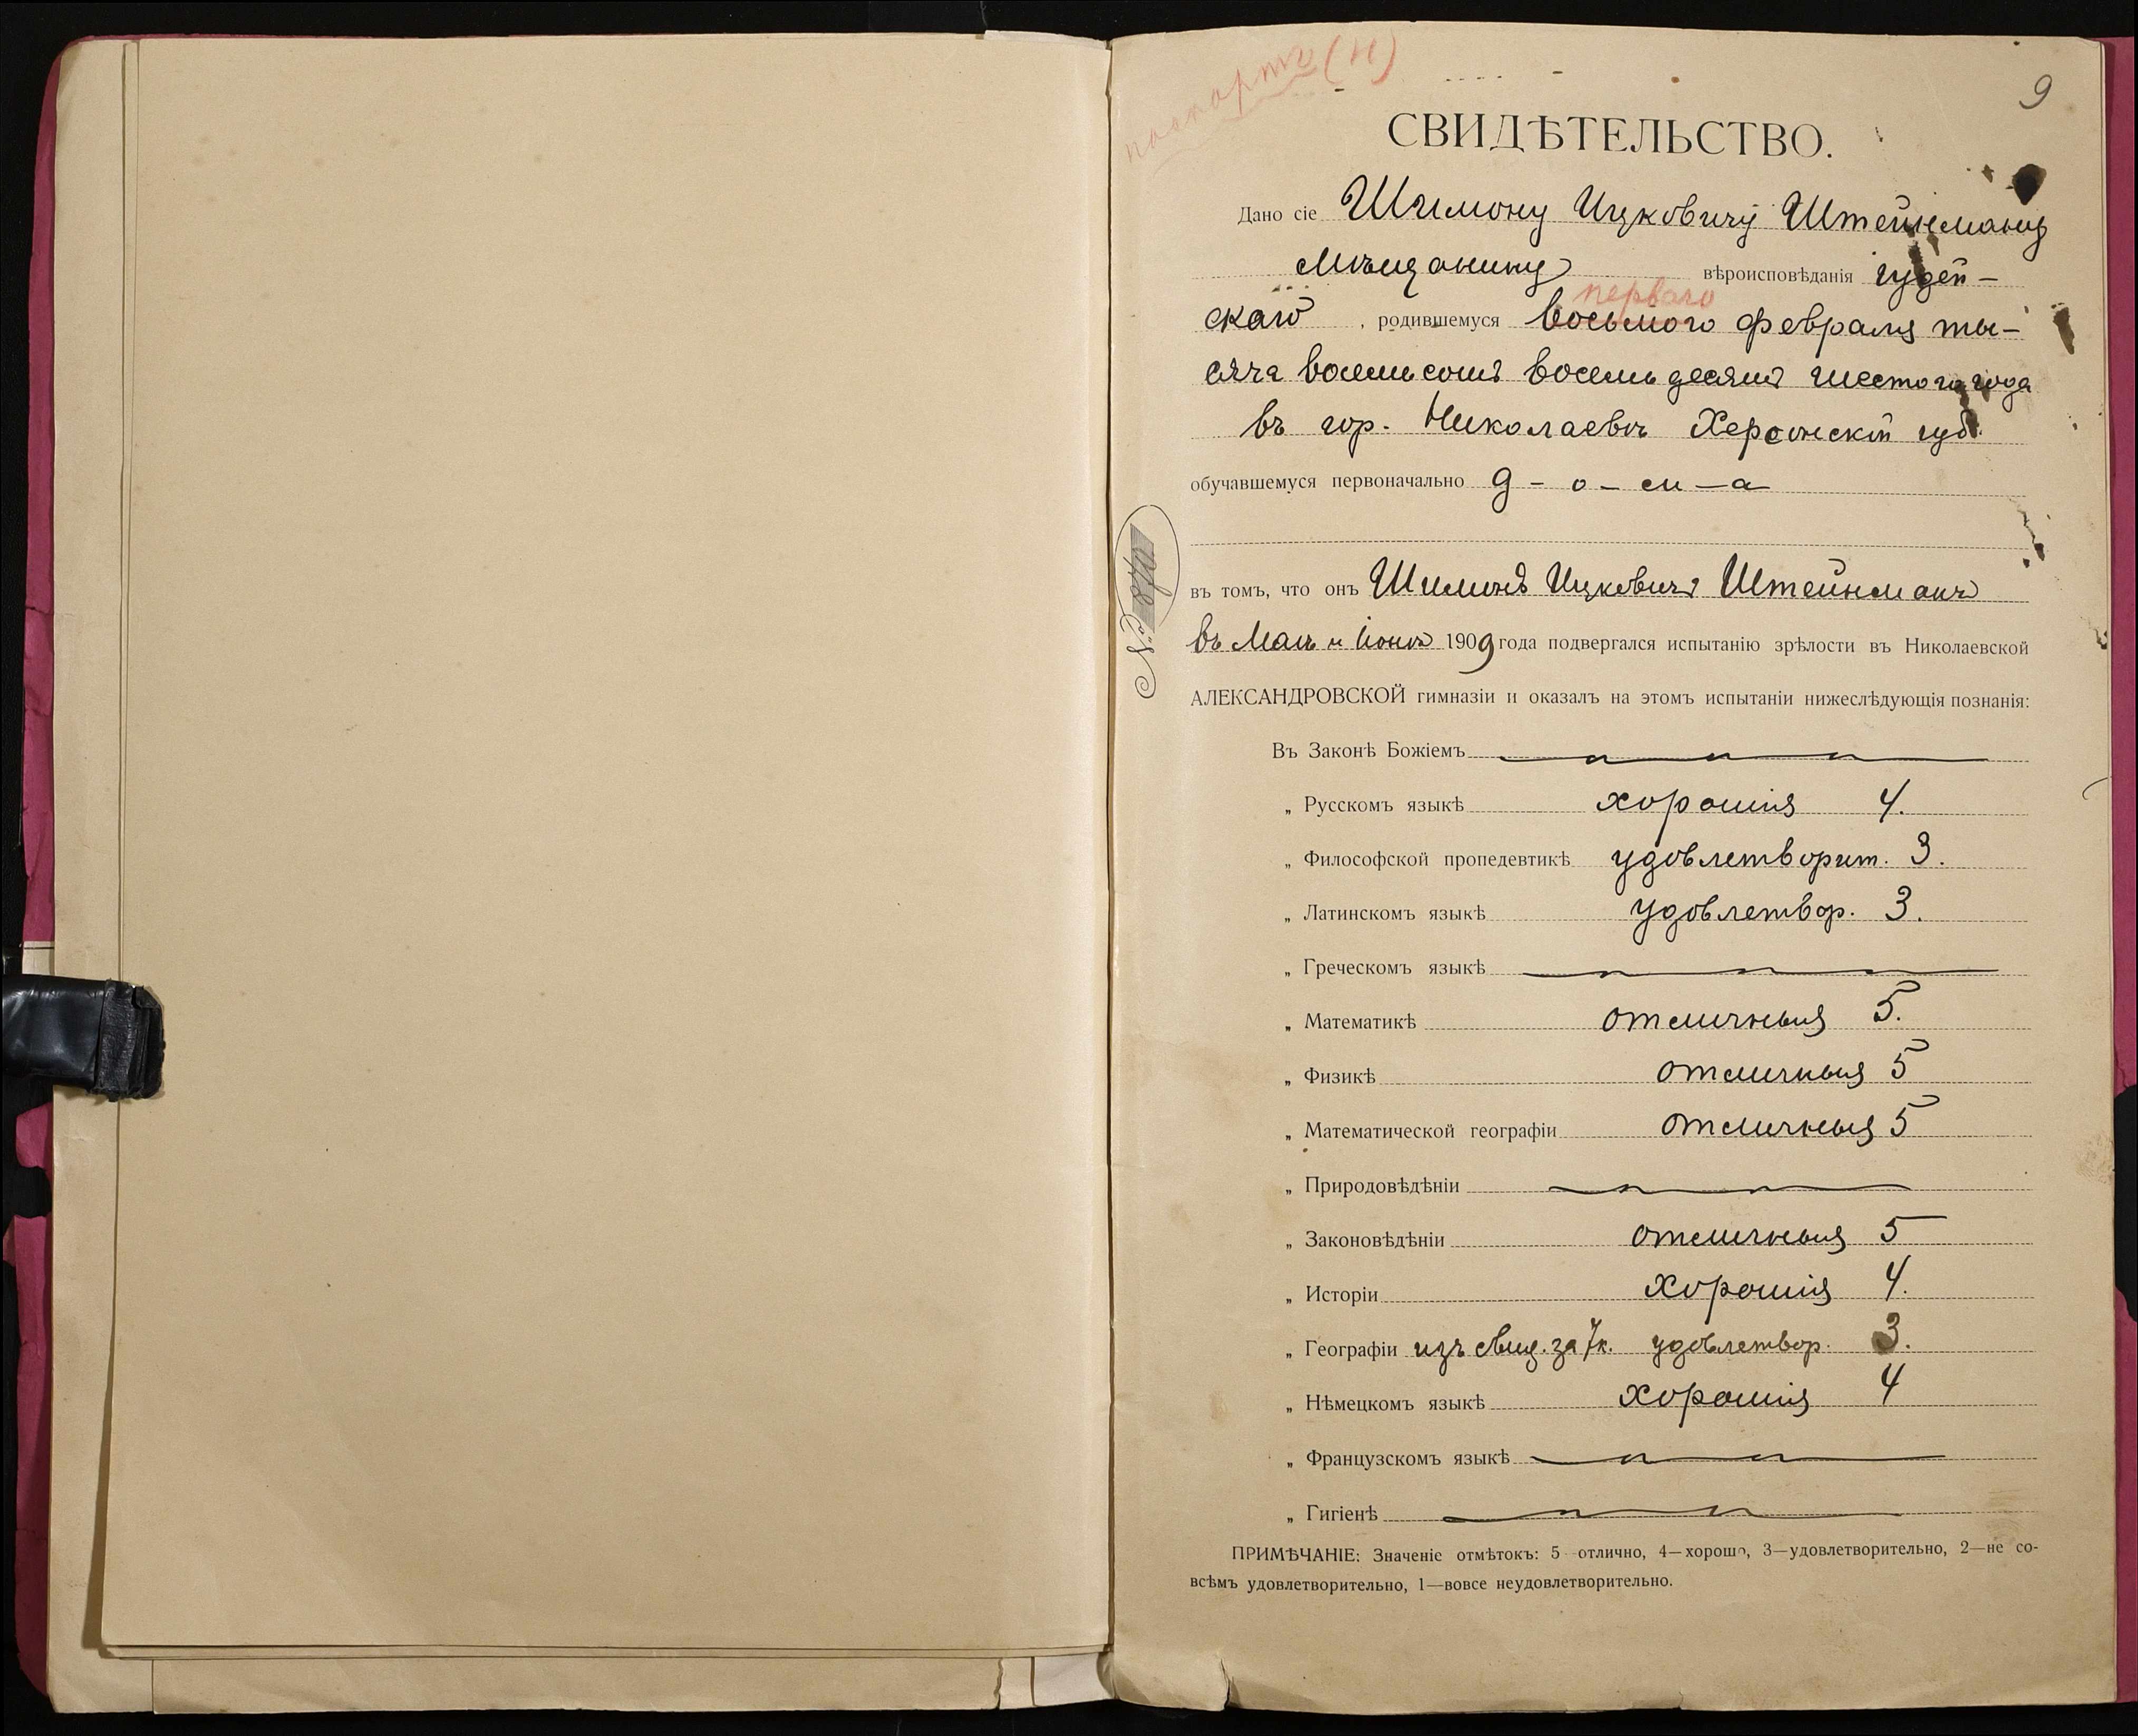 паспортъ (н)
9
СВИДѢТЕЛЬСТВО.
Дано сіе Шимону Ицковичу Штейнману
мѣщанину вѣроисповѣданія іудей-
первого
скаго , родившемуся восьмого февраля ты-
сяча восемьсотъ восемьдесятъ шестого года
въ гор. Николаевѣ Херсонской губ.
обучавшемуся первоначально д - о - м - а
въ томъ, что онъ Шимонъ Ицковичъ Штейнманъ
въ Маѣ и Іюнѣ 1909 года подвергался испытанію зрѣлости въ Николаевской
№ 870
АЛЕКСАНДРОВСКОЙ гимназіи и оказалъ на этомъ испытаніи нижеслѣдующія познанія:
Въ Законѣ Божіемъ
„ Русскомъ языкѣ хорошія 4.
„ Философской пропедевтикѣ удовлетворит. 3.
„ Латинскомъ языкѣ удовлетвор. 3.
„ Греческомъ языкѣ
„ Математикѣ отличныя 5.
„ Физикѣ отличныя 5
„ Математической географіи отличныя 5
„ Природовѣдѣніи
„ Законовѣдѣніи отличныя 5
„ Исторіи хорошія 4.
„ Географіи изъ свид. за 7к. удовлетвор. 3.
„ Нѣмецкомъ языкѣ хорошія 4
„ Французскомъ языкѣ
„ Гигіенѣ
ПРИМѢЧАНІЕ: Значеніе отмѣтокъ: 5 отлично, 4—хорошо, 3—удовлетворительно, 2—не со-
всѣмъ удовлетворительно, 1—вовсе неудовлетворительно.